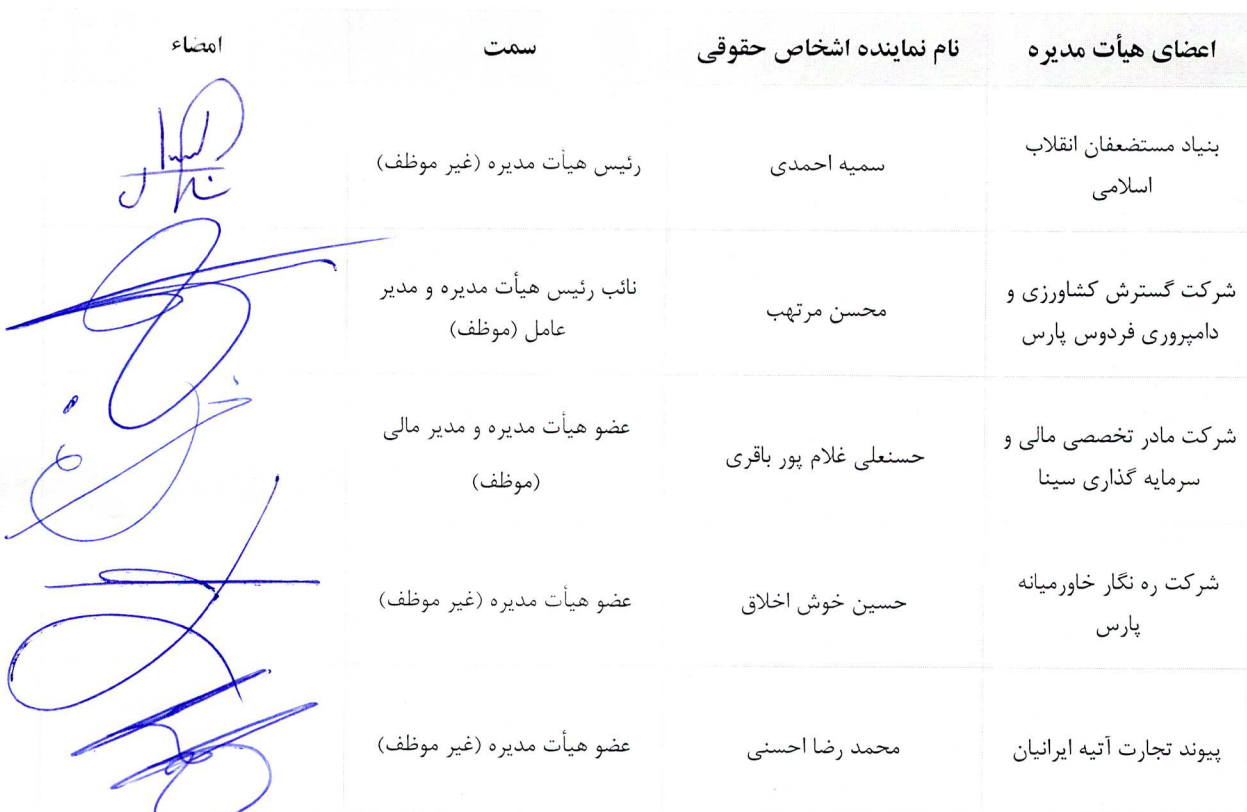 اعضای هیأت مدیره	نام نماینده اشخاص حقوقی	سمت	امضاء
بنیاد مستضعفان انقلاب
اسلامی
سمیه احمدی
رئیس هیأت مدیره (غیر موظف)
شرکت گسترش کشاورزی و
دامپروری فردوس پارس
محسن مرتهب
نائب رئیس هیأت مدیره و مدیر
عامل (موظف)
شرکت مادر تخصصی مالی و
سرمایه گذاری سینا
حسنعلی غلام پور باقری
عضو هیأت مدیره و مدیر مالی
(موظف)
شرکت ره نگار خاورمیانه
پارس
حسین خوش اخلاق
عضو هیأت مدیره (غیر موظف)
پیوند تجارت آتیه ایرانیان
محمد رضا احسنی
عضو هیأت مدیره (غیر موظف)